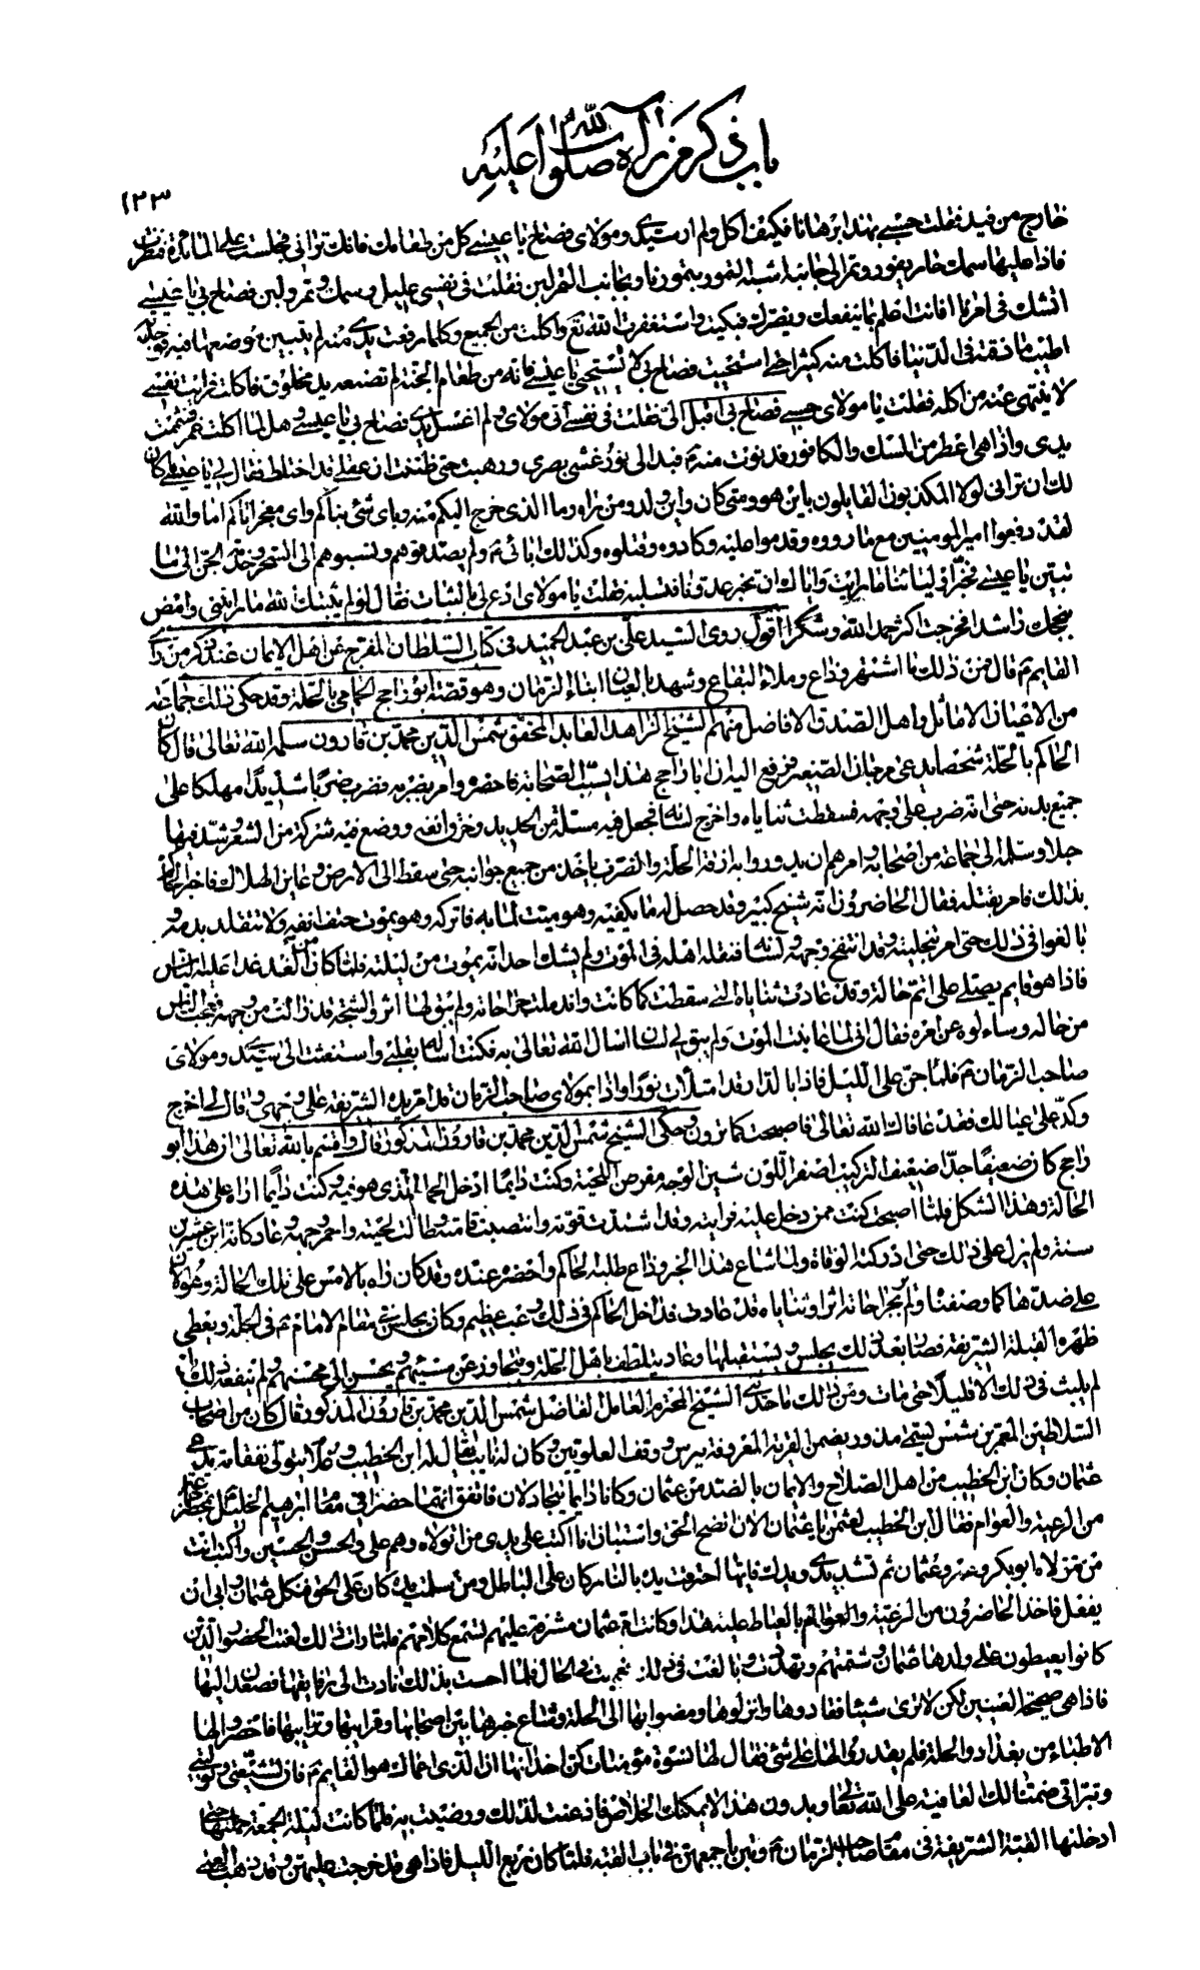 باب ذكر من رآه صلوات الله عليه
١٢٣
خارج من فيد فقلت حسبي بهذا برهانا فكيف آكل ولم ار سيدي ومولاى فصاح يا عيسى كل من طعامك فانك تراني فجلست على المائدة فنظرت
فاذا عليها سمك حار يفور وتمر الى جانبه اشبه التمور بتمورنا وبجانب التمر لبن فقلت في نفسي عليل وسمك وتمر ولبن فصاح بي يا عيسى
اتشك في امرنا افانت اعلم بما ينفعك ويضرك فبكيت واستغفرت الله تع واكلت من الجميع وكلما رفعت يدي منه لم يتبين موضعها فيه فوجدته
اطيب ما ذقته في الدنيا فاكلت منه كثيرا حتى استحييت فصاح بي لا تستحيي يا عيسى فانه من طعام الجنة لم تصنعه يد مخلوق فاكلت فرايت نفسي
لا ينتهى عنه من اكله فقلت يا مولاى حسبي فصاح بي اقبل الى فقلت في نفسي آتى مولاى ولم اغسل يدي فصاح بي يا عيسى وهل لما اكلت غمر فشممت
يدى واذا هى اعطر من المسك والكافور فدنوت منه ع فبدا لى نور غشى بصرى ورهبت حتى ظننت ان عقلى قد اختلط فقال لى يا عيسى ما كان
لك ان تراني لولا المكذبون القايلون باين هو ومتى كان واين ولد ومن رآه وما الذى خرج اليكم منه وباى شئ نبأكم واى معجز اتاكم اما والله
لقد دفعوا امير المومنين مع ما رووه وقدموا عليه وكادوه وقتلوه وكذلك ابائى ع ولم يصدقوهم ونسبوهم الى السحر وخدمة الجن الى ما
تبين يا عيسى فخبر اوليائنا ما رايت واياك ان تخبر عدونا فتسلبه فقلت يا مولاى ادع لى بالثبات فقال لو لم يثبتك الله ما رايتنى وامض
بنجحك راشدا فخرجت اكثر حمدا لله وشكرا اقول روى السيد على بن عبد الحميد في كتاب السلطان المفرج عن اهل الايمان عند ذكر من رآى
القايم ع قال فمن ذلك ما اشتهر وذاع وملاء البقاع وشهد بالعيان ابناء الزمان وهو قصة ابو راجح الحمامي بالحلة وقد حكى ذلك جماعة
من الاعيان الاماثل واهل الصدق الافاضل منهم الشيخ الزاهد العابد المحقق شمس الدين محمد بن قارون سلمه الله تعالى قال كان
الحاكم بالحلة شخصا يدعى مرجان الصغير فرفع اليه ان ابا راجح هذا يسب الصحابة فاحضره وامر بضربه فضرب ضربا شديدا مهلكا على
جميع بدنه حتى انه ضرب على وجهه فسقطت ثناياه واخرج لسانه فجعل فيه مسلة من الحديد وخرق انفه ووضع فيه شركة من الشعر وشد فيها
حبلا وسلمه الى جماعة من اصحابه وامرهم ان يدوروا به ازقة الحلة والضرب ياخذ من جميع جوانبه حتى سقط الى الارض وعاين الهلاك فاخبر الحاكم
بذلك فامر بقتله فقال الحاضرون انه شيخ كبير وقد حصل له ما يكفيه وهو ميت لما به فاتركه وهو يموت حتف انفه ولا تتقلد بدمه و
بالغوا في ذلك حتى امر بتخليته وقد انتفخ وجهه ولسانه فنقله اهله في الموت ولم يشك احد انه يموت من ليلته فلما كان من الغد غدا عليه الناس
فاذا هو قايم يصلى على اتم حالة وقد عادت ثناياه التى سقطت كما كانت واندملت جراحاته ولم يبق لها اثر والشجة قد زالت من وجهه فعجب الناس
من حاله وساءلوه عن امره فقال انى لما عاينت الموت ولم يبق لى لسان اسال الله تعالى به فكنت اساله بقلبى واستغثت الى سيدي ومولاى
صاحب الزمان ع فلما جن على الليل فاذا بالدار قد امتلأت نورا واذا بمولاى صاحب الزمان قد امر يده الشريفة على وجهى وقال لى اخرج
وكد على عيالك فقد عافاك الله تعالى فاصبحت كما ترون وحكى الشيخ شمس الدين محمد بن قارون المذكور قال واقسم بالله تعالى ان هذا ابو
راجح كان ضعيفا جدا ضعيف التركيب اصفر اللون شين الوجه مقرض اللحية وكنت دايما ادخل الحمام الذى هو فيه وكنت دايما اراه على هذه
الحالة وهذا الشكل فلما اصبحت كنت ممن دخل عليه فرايته وقد اشتدت قوته وانتصبت قامته وطالت لحيته واحمر وجهه وعاد كانه ابن عشرين
سنة ولم يزل على ذلك حتى ادركته الوفاة ولما شاع هذا الخبر وذاع طلبه الحاكم واحضره عنده وقد كان راه بالامس على تلك الحالة وهو الان
على ضدها كما وصفناه ولم ير بجراحاته اثرا وثناياه قد عادت فداخل الحاكم في ذلك رعب عظيم وكان يجلس في مقام الامام ع في الحلة ويعطى
ظهره القبلة الشريفة فصار بعد ذلك يجلس ويستقبلها وعاد يتلطف باهل الحلة ويتجاوز عن مسيئهم ويحسن الى محسنهم ولم ينفعه ذلك بل
لم يلبث في ذلك الا قليلا حتى مات ومن ذلك ما حدثنى الشيخ المحترم العامل الفاضل شمس الدين محمد بن قارون المذكور قال كان من اصحاب
السلاطين المعمر بن شمس يسمى مذور يضمن القرية المعروفة ببرس ووقف العلويين وكان له نايب يقال له ابن الخطيب وغلام يتولى نفقاته يدعى
عثمان وكان ابن الخطيب من اهل الصلاح والايمان بالضد من عثمان وكانا دايما يتجادلان فاتفق انهما حضرا في مقام ابرهيم الخليل بمحضر جماعة
من الرعية والعوام فقال ابن الخطيب لعثمن يا عثمان الان اتضح الحق واستبان انا اكتب على يدى من اتولاه وهم على والحسن والحسين واكتب انت
من تتولاه ابو بكر وعمر وعثمان ثم تشد يدي ويدك فايها احترقت يده بالنار كان على الباطل ومن سلمت يده كان على الحق فنكل عثمان وابى ان
يفعل فاخذ الحاضرون من الرعية والعوام بالعياط عليه هذا وكانت ام عثمان مشرفة عليهم تسمع كلامهم فلما رات ذلك لعنت الحضور الذين
كانوا يعيطون على ولدها عثمان وشتمتهم وتهددت وبالغت في ذلك فعميت في الحال فلما احست بذلك نادت الى رفايقها فصعدن اليها
فاذا هى صحيحة العينين لكن لا ترى شيئا فقادوها وانزلوها ومضوا بها الى الحلة وشاع خبرها بين اصحابها وقرايبها وترايبها فاحضروا لها
الاطباء من بغداد والحلة فلم يقدروا لها على شئ فقال لها نسوة مؤمنات كن اخدانها ان الذى اعماك هو القايم ع فان تشيعتى وتوليتى
وتبراتى ضمنا لك العافية على الله تعالى وبدون هذا لا يمكنك الخلاص فاذعنت لذلك ورضيت به فلما كانت ليلة الجمعة حملنها حتى
ادخلنها القبة الشريفة في مقام صاحب الزمان ع وبتن باجمعهن في باب القبة فلما كان ربع الليل فاذا هى قد خرجت عليهن وقد ذهب العمى